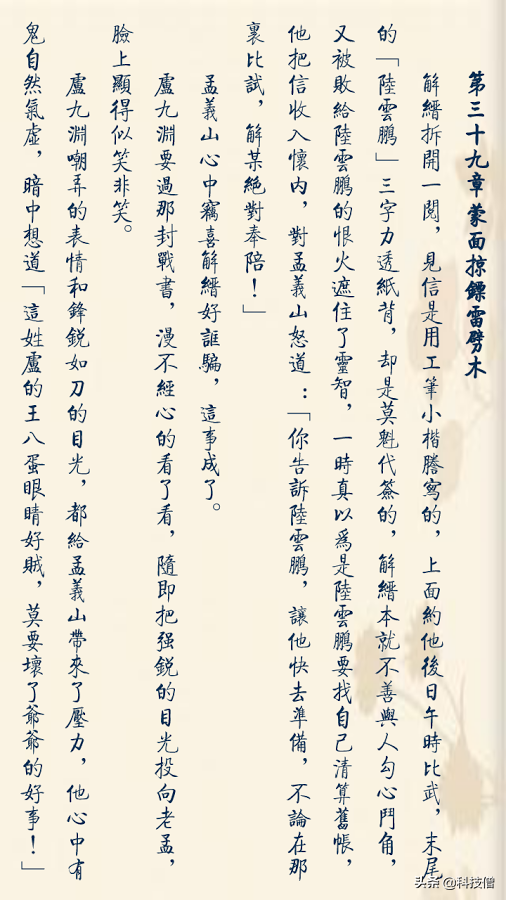 第三十九章蒙面掠鏢雷劈木
解縉拆開一閱，見信是用工筆小楷謄寫的，上面約他後日午時比武，末尾
的「陸雲鵬」三字力透紙背，却是莫魁代簽的，解縉本就不善與人勾心鬥角，
又被敗給陸雲鵬的恨火遮住了靈智，一時真以爲是陸雲鵬要找自己清算舊帳，
他把信收入懷内，對孟義山怒道：「你告訴陸雲鵬，讓他快去準備，不論在那
裏比試，解某絕對奉陪！」
孟義山心中竊喜解縉好誆騙，這事成了。
盧九淵要過那封戰書，漫不經心的看了看，隨即把强銳的目光投向老孟，
臉上顯得似笑非笑。
盧九淵嘲弄的表情和鋒銳如刀的目光，都給孟義山帶來了壓力，他心中有
鬼自然氣虛，暗中想道「這姓盧的王八蛋眼睛好賊，莫要壞了爺爺的好事！」
头条 @科技僧